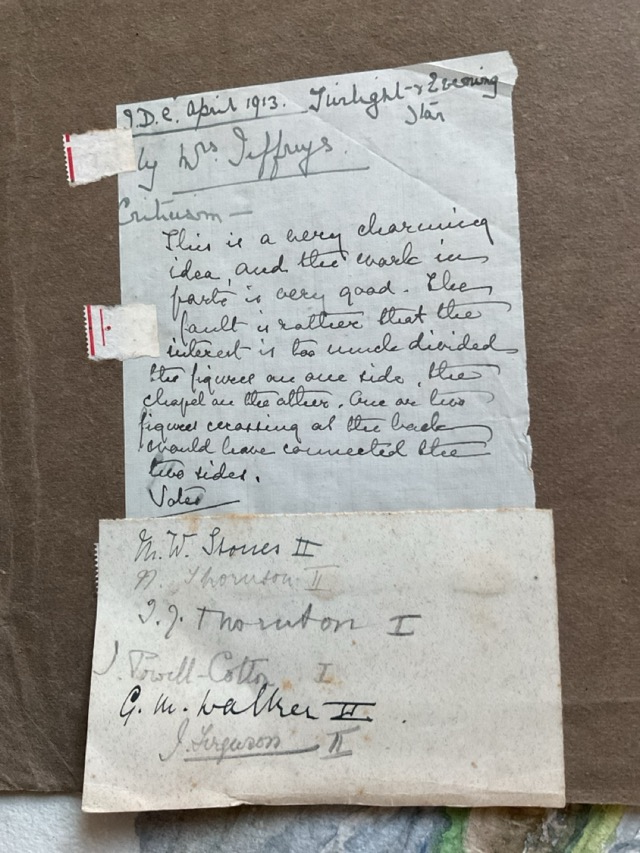 I.D.C. April 1913. Twilight & Evening
Star
by Mrs Jeffreys.
Criticism —
This is a very charming
idea, and the work in
parts is very good. The
fault is rather that the
interest is too much divided
the figures on one side, the
chapel on the other. One or two
figures crossing at the back
would have connected the
two sides.
Votes
M. W. Stones II
Thornton II
J. J. Thornton I
J. Powell-Cotton I
G. M. Walker II.
J. Ferguson II